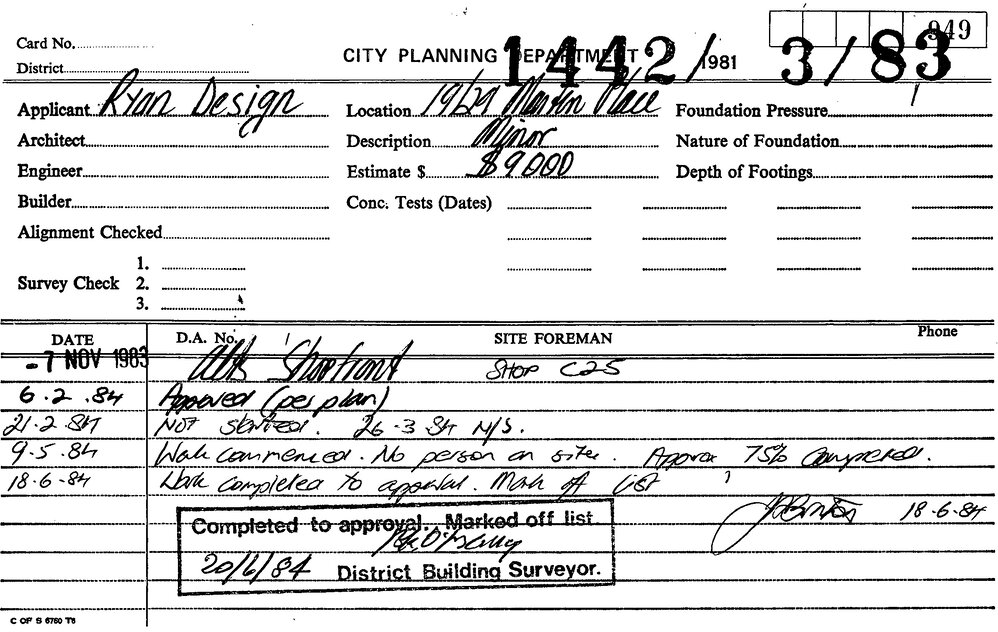 949
Card No.
CITY PLANNING DEPARTMENT 1442/1981 3/83
District
Applicant Ryan Design Location 19/29 Martin Place Foundation Pressure
Architect Description Minor Nature of Foundation
Engineer Estimate $ $9,000 Depth of Footings
Builder Conc. Tests (Dates)
Alignment Checked
1.
Survey Check 2.
3.
DATE D.A. No. SITE FOREMAN Phone
-7 NOV 1983 Alts Shopfront SHOP C25
6.2.84 Approved (per plan)
21-2-84 Not started. 26-3-84 N/S.
9-5-84 Work commenced. No person on site. Approx 75% completed.
18-6-84 Work completed to approval. Mark off list
18-6-84
Completed to approval. Marked off list.
20/6/84 District Building Surveyor.
C OF S 6760 T6